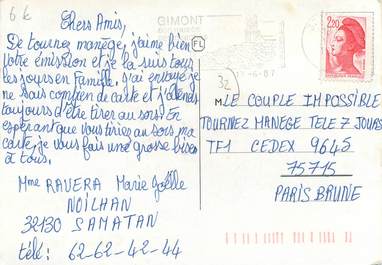 6k
Chers Amis,
De tournez manège, j'aime bien
votre émission et je la suis tous
les jours en Famille. j'ai envoyé je
ne sais combien de carte et j'attends
toujours d'être tirer au sors. En
espérant que vous tiriez au sors ma
carte, je vous fais une grosse bises
à tous.
Mme RAVERA Marie Joëlle
NOILHAN
32130 SAMATAN
tél: 62-62-42-44
GIMONT
FL
32
2,20
LE COUPLE IMPOSSIBLE
TOURNEZ MANEGE TELE 7 JOURS
TF1 CEDEX 9645
75715
PARIS BRUNE